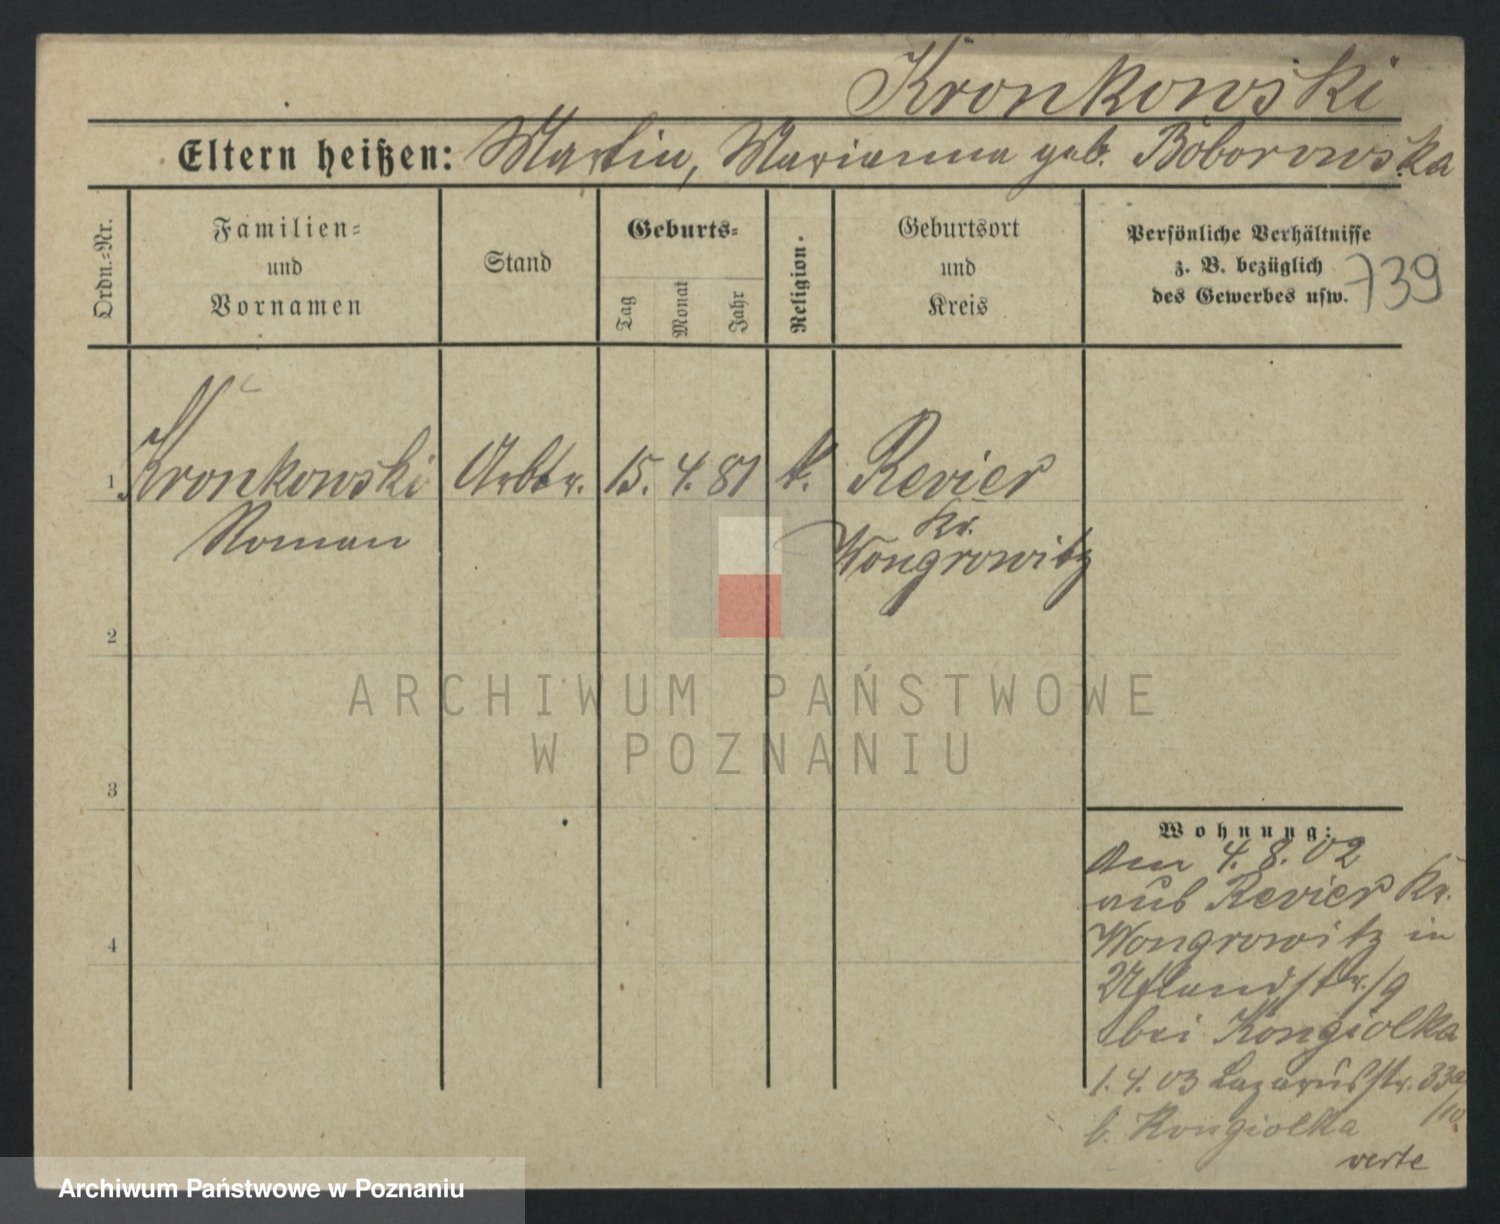 Kronkowski
Eltern heißen: Martin, Marianna geb. Boborowska
Ordn.-Nr.
Familien-
und
Vornamen
Stand
Geburts-
Tag
Monat
Jahr
Religion.
Geburtsort
und
Kreis
Persönliche Verhältnisse
z. B. bezüglich
des Gewerbes usw.
739
1 Kronkowski Arbtr. 15. 4. 81 k. Revier
Roman
Kr.
Wongrowitz
2
3
4
Wohnung:
Am 4. 8. 02
aus Revier Kr.
Wongrowitz in
bei Kongiolka
1. 4. 03 Lazarusstr. 33a
/10
b. Kongiolka
verte
ARCHIWUM PAŃSTWOWE
W POZNANIU
Archiwum Państwowe w Poznaniu